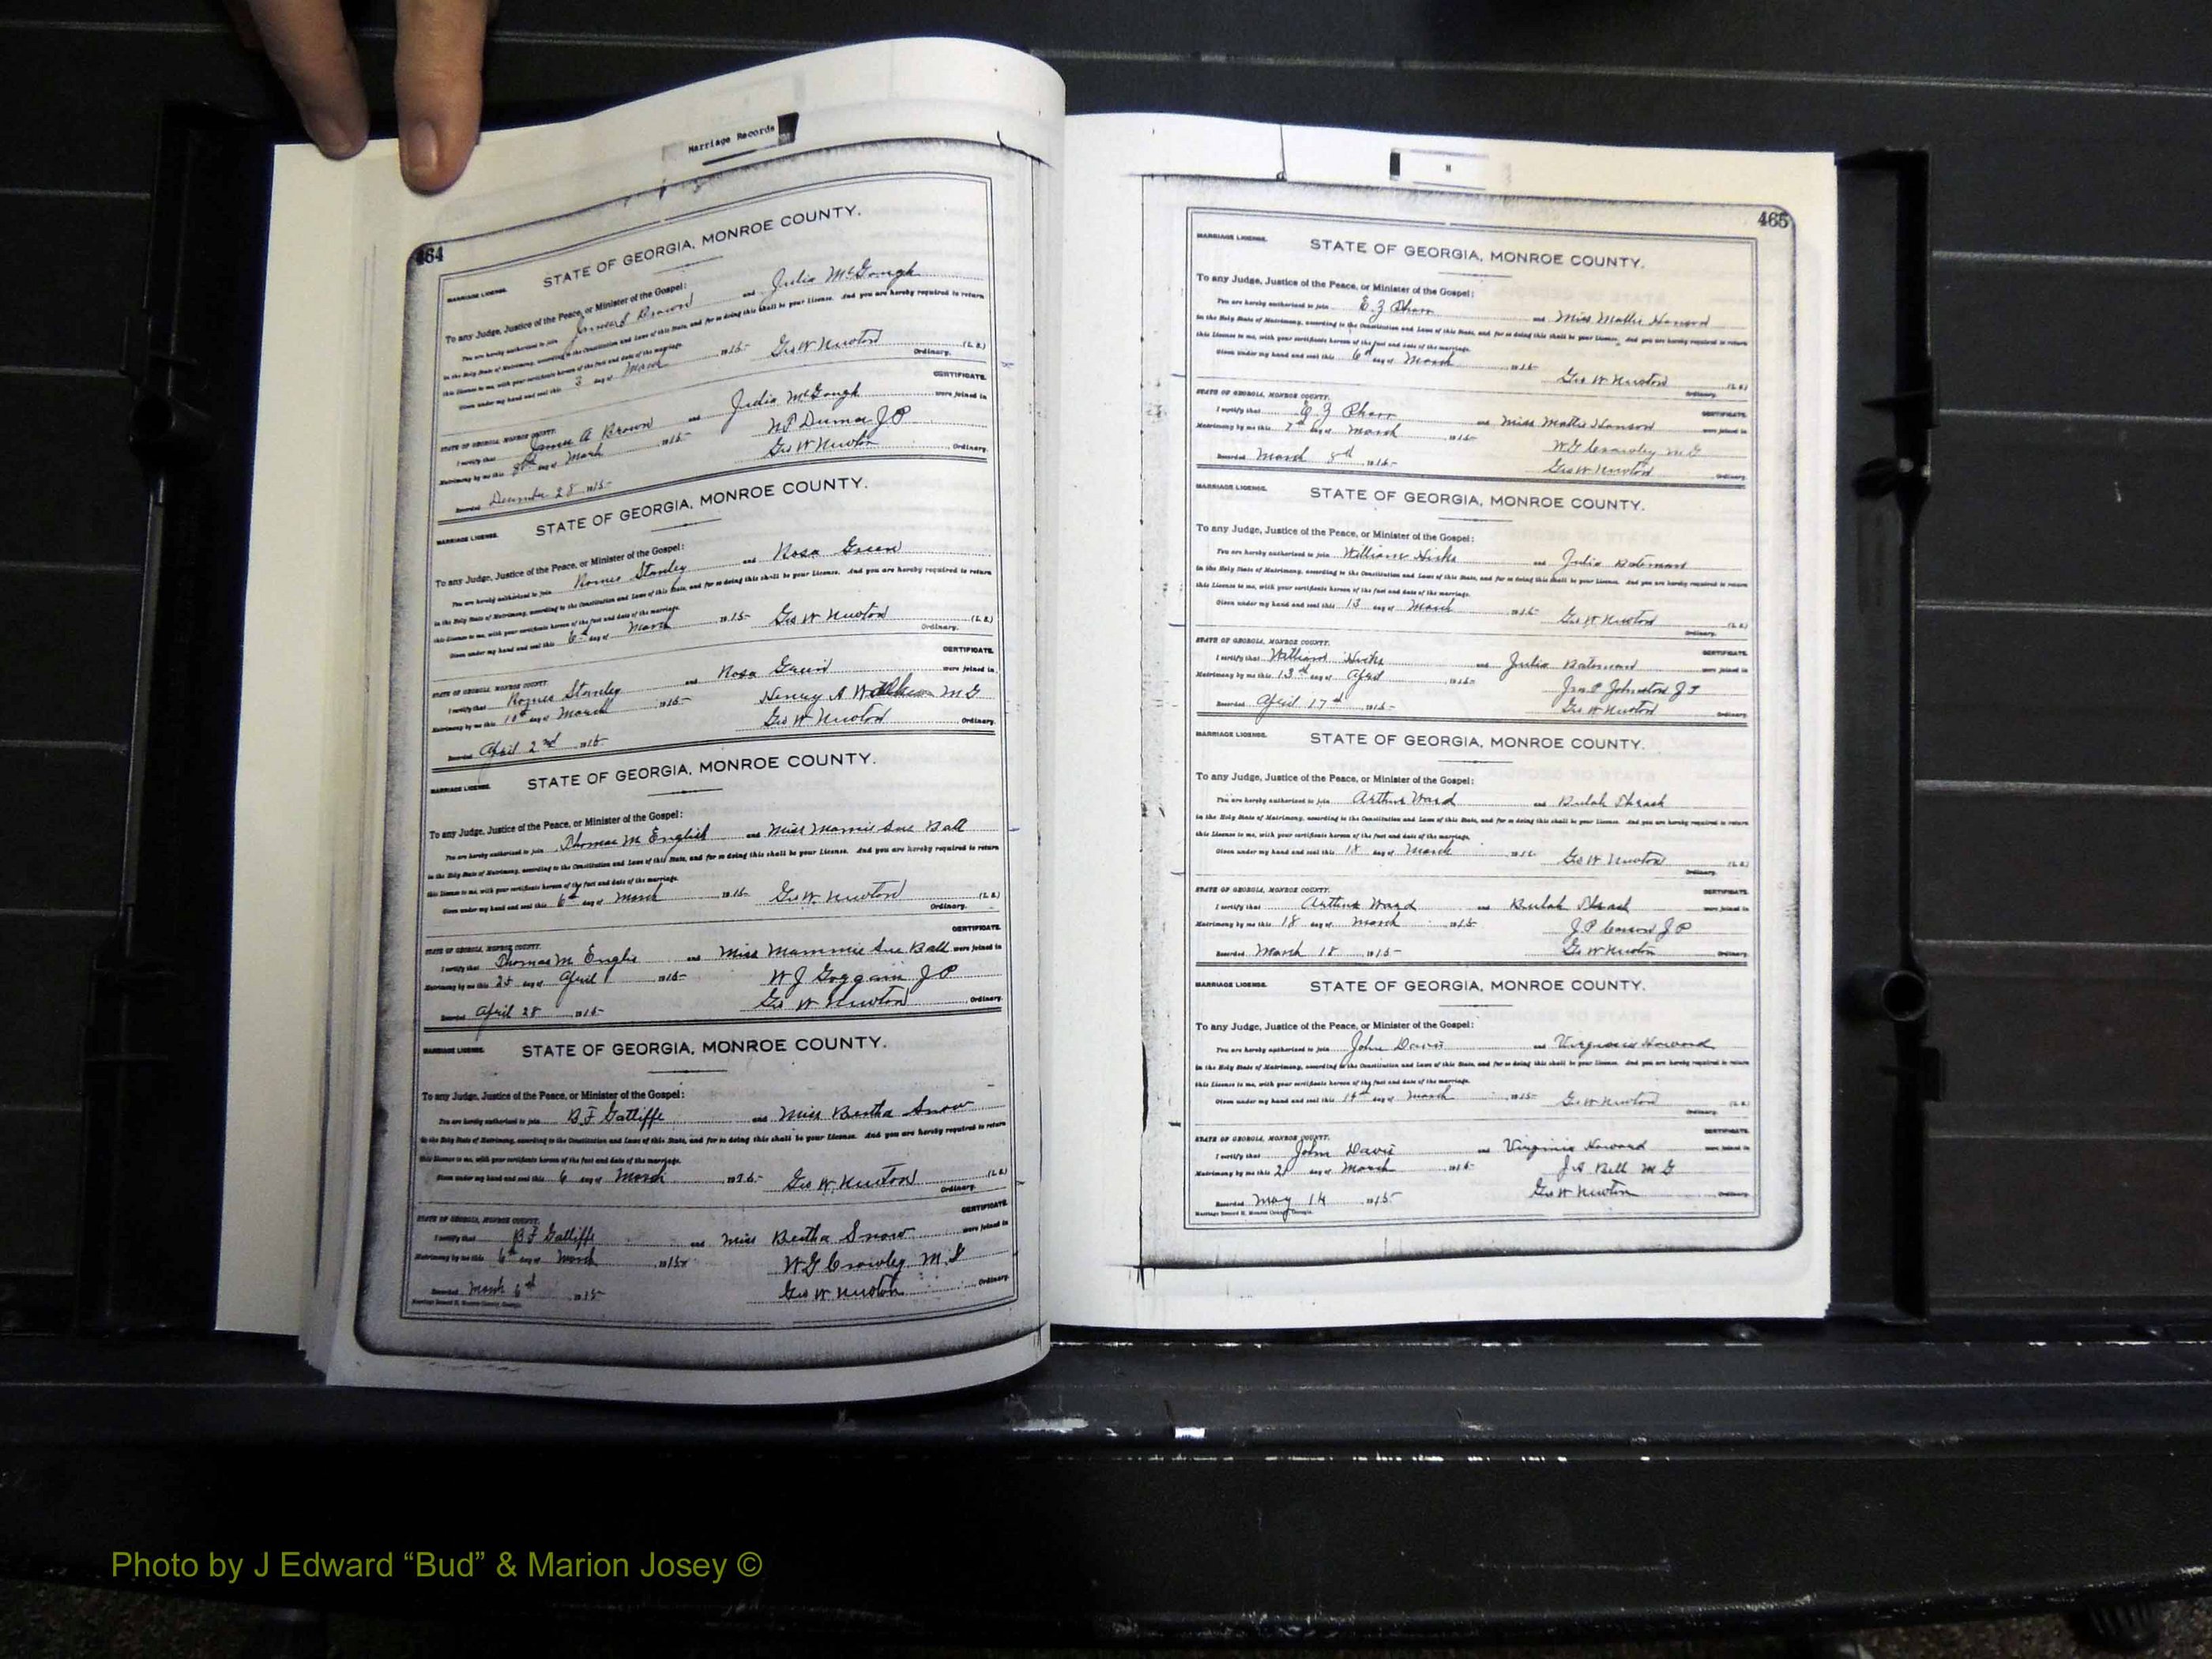 Marriage Records
464
MARRIAGE LICENSE.
STATE OF GEORGIA, MONROE COUNTY.
To any Judge, Justice of the Peace, or Minister of the Gospel:
You are hereby authorized to join Brown and Julia McGough
in the Holy State of Matrimony, according to the Constitution and Laws of this State, and for so doing this shall be your License. And you are hereby required to return
this License to me, with your certificate hereon of the fact and date of the marriage.
Given under my hand and seal this 3 day of March 1915- Geo W Newton (L. S.)
Ordinary.
CERTIFICATE.
STATE OF GEORGIA, MONROE COUNTY.
I certify that James A Brown and Julia McGough were joined in
Matrimony by me this day of March 1915-
Geo W Newton Ordinary.
Recorded December 28 1915-
MARRIAGE LICENSE.
STATE OF GEORGIA, MONROE COUNTY.
To any Judge, Justice of the Peace, or Minister of the Gospel:
You are hereby authorized to join Stanley and Rosa Green
in the Holy State of Matrimony, according to the Constitution and Laws of this State, and for so doing this shall be your License. And you are hereby required to return
this License to me, with your certificate hereon of the fact and date of the marriage.
Given under my hand and seal this 6th day of March 1915- Geo W Newton (L. S.)
Ordinary.
CERTIFICATE.
STATE OF GEORGIA, MONROE COUNTY.
I certify that Stanley and Rosa were joined in
Matrimony by me this 10th day of March 1915- Henry A M G
Geo W Newton Ordinary.
Recorded April 2nd 1915
MARRIAGE LICENSE.
STATE OF GEORGIA, MONROE COUNTY.
To any Judge, Justice of the Peace, or Minister of the Gospel:
You are hereby authorized to join Thomas M English and Miss Mamie Sue Ball
in the Holy State of Matrimony, according to the Constitution and Laws of this State, and for so doing this shall be your License. And you are hereby required to return
this License to me, with your certificate hereon of the fact and date of the marriage.
Given under my hand and seal this 6th day of March 1915- Geo W. Newton (L. S.)
Ordinary.
CERTIFICATE.
STATE OF GEORGIA, MONROE COUNTY.
I certify that Thomas M. Englis and Miss Mammie Sue Ball were joined in
Matrimony by me this 25 day of April 1915- W J Goggans J P
Geo W Newton Ordinary.
Recorded April 28 1915-
MARRIAGE LICENSE.
STATE OF GEORGIA, MONROE COUNTY.
To any Judge, Justice of the Peace, or Minister of the Gospel:
You are hereby authorized to join B. F Gatliffe and Miss Bertha Snow
in the Holy State of Matrimony, according to the Constitution and Laws of this State, and for so doing this shall be your License. And you are hereby required to return
this License to me, with your certificate hereon of the fact and date of the marriage.
Given under my hand and seal this 6 day of March 1915- Geo W. Newton (L. S.)
Ordinary.
CERTIFICATE.
STATE OF GEORGIA, MONROE COUNTY.
I certify that B F Gatliffe and Miss Bertha Snow were joined in
Matrimony by me this 6th day of March 1915 W G Crowley M. G
Geo W Newton Ordinary.
Recorded March 6th 1915-
Marriage Record H, Monroe County, Georgia.
465
MARRIAGE LICENSE.
STATE OF GEORGIA, MONROE COUNTY.
To any Judge, Justice of the Peace, or Minister of the Gospel:
You are hereby authorized to join E. Z and Miss Mattie Hanson
in the Holy State of Matrimony, according to the Constitution and Laws of this State, and for so doing this shall be your License. And you are hereby required to return
this License to me, with your certificate hereon of the fact and date of the marriage.
Given under my hand and seal this 6th day of March 1915- Geo W Newton (L. S.)
Ordinary.
STATE OF GEORGIA, MONROE COUNTY.
CERTIFICATE.
I certify that and Miss Mattie Hanson were joined in
Matrimony by me this 7th day of March 1915- W G Crowley M G
Geo W Newton Ordinary.
Recorded March 8th 1915-
MARRIAGE LICENSE.
STATE OF GEORGIA, MONROE COUNTY.
To any Judge, Justice of the Peace, or Minister of the Gospel:
You are hereby authorized to join William Hicks and Julia Bateman
in the Holy State of Matrimony, according to the Constitution and Laws of this State, and for so doing this shall be your License. And you are hereby required to return
this License to me, with your certificate hereon of the fact and date of the marriage.
Given under my hand and seal this 13 day of March 1915- Geo W Newton (L. S.)
Ordinary.
STATE OF GEORGIA, MONROE COUNTY.
CERTIFICATE.
I certify that William Hicks and Julia Bateman were joined in
Matrimony by me this 13th day of April 1915- Jno P Johnston J P
Geo W Newton Ordinary.
Recorded April 17th 1915-
MARRIAGE LICENSE.
STATE OF GEORGIA, MONROE COUNTY.
To any Judge, Justice of the Peace, or Minister of the Gospel:
You are hereby authorized to join Arthur Ward and Bulah Thrash
in the Holy State of Matrimony, according to the Constitution and Laws of this State, and for so doing this shall be your License. And you are hereby required to return
this License to me, with your certificate hereon of the fact and date of the marriage.
Given under my hand and seal this 18 day of March 1915 Geo W Newton (L. S.)
Ordinary.
STATE OF GEORGIA, MONROE COUNTY.
CERTIFICATE.
I certify that Arthur Ward and Bulah Thrash were joined in
Matrimony by me this 18 day of March 1915- J. P Carson J P
Geo W Newton Ordinary.
Recorded March 18 1915-
MARRIAGE LICENSE.
STATE OF GEORGIA, MONROE COUNTY.
To any Judge, Justice of the Peace, or Minister of the Gospel:
You are hereby authorized to join John Davis and Virginia Howard
in the Holy State of Matrimony, according to the Constitution and Laws of this State, and for so doing this shall be your License. And you are hereby required to return
this License to me, with your certificate hereon of the fact and date of the marriage.
Given under my hand and seal this 19th day of March 1915- Geo W Newton (L. S.)
Ordinary.
STATE OF GEORGIA, MONROE COUNTY.
CERTIFICATE.
I certify that John Davis and Virginia Howard were joined in
Matrimony by me this 21 day of March 1915- Bell M G
Geo W Newton Ordinary.
Recorded May 14 1915-
Marriage Record H, Monroe County, Georgia.
Photo by J Edward “Bud” & Marion Josey ©